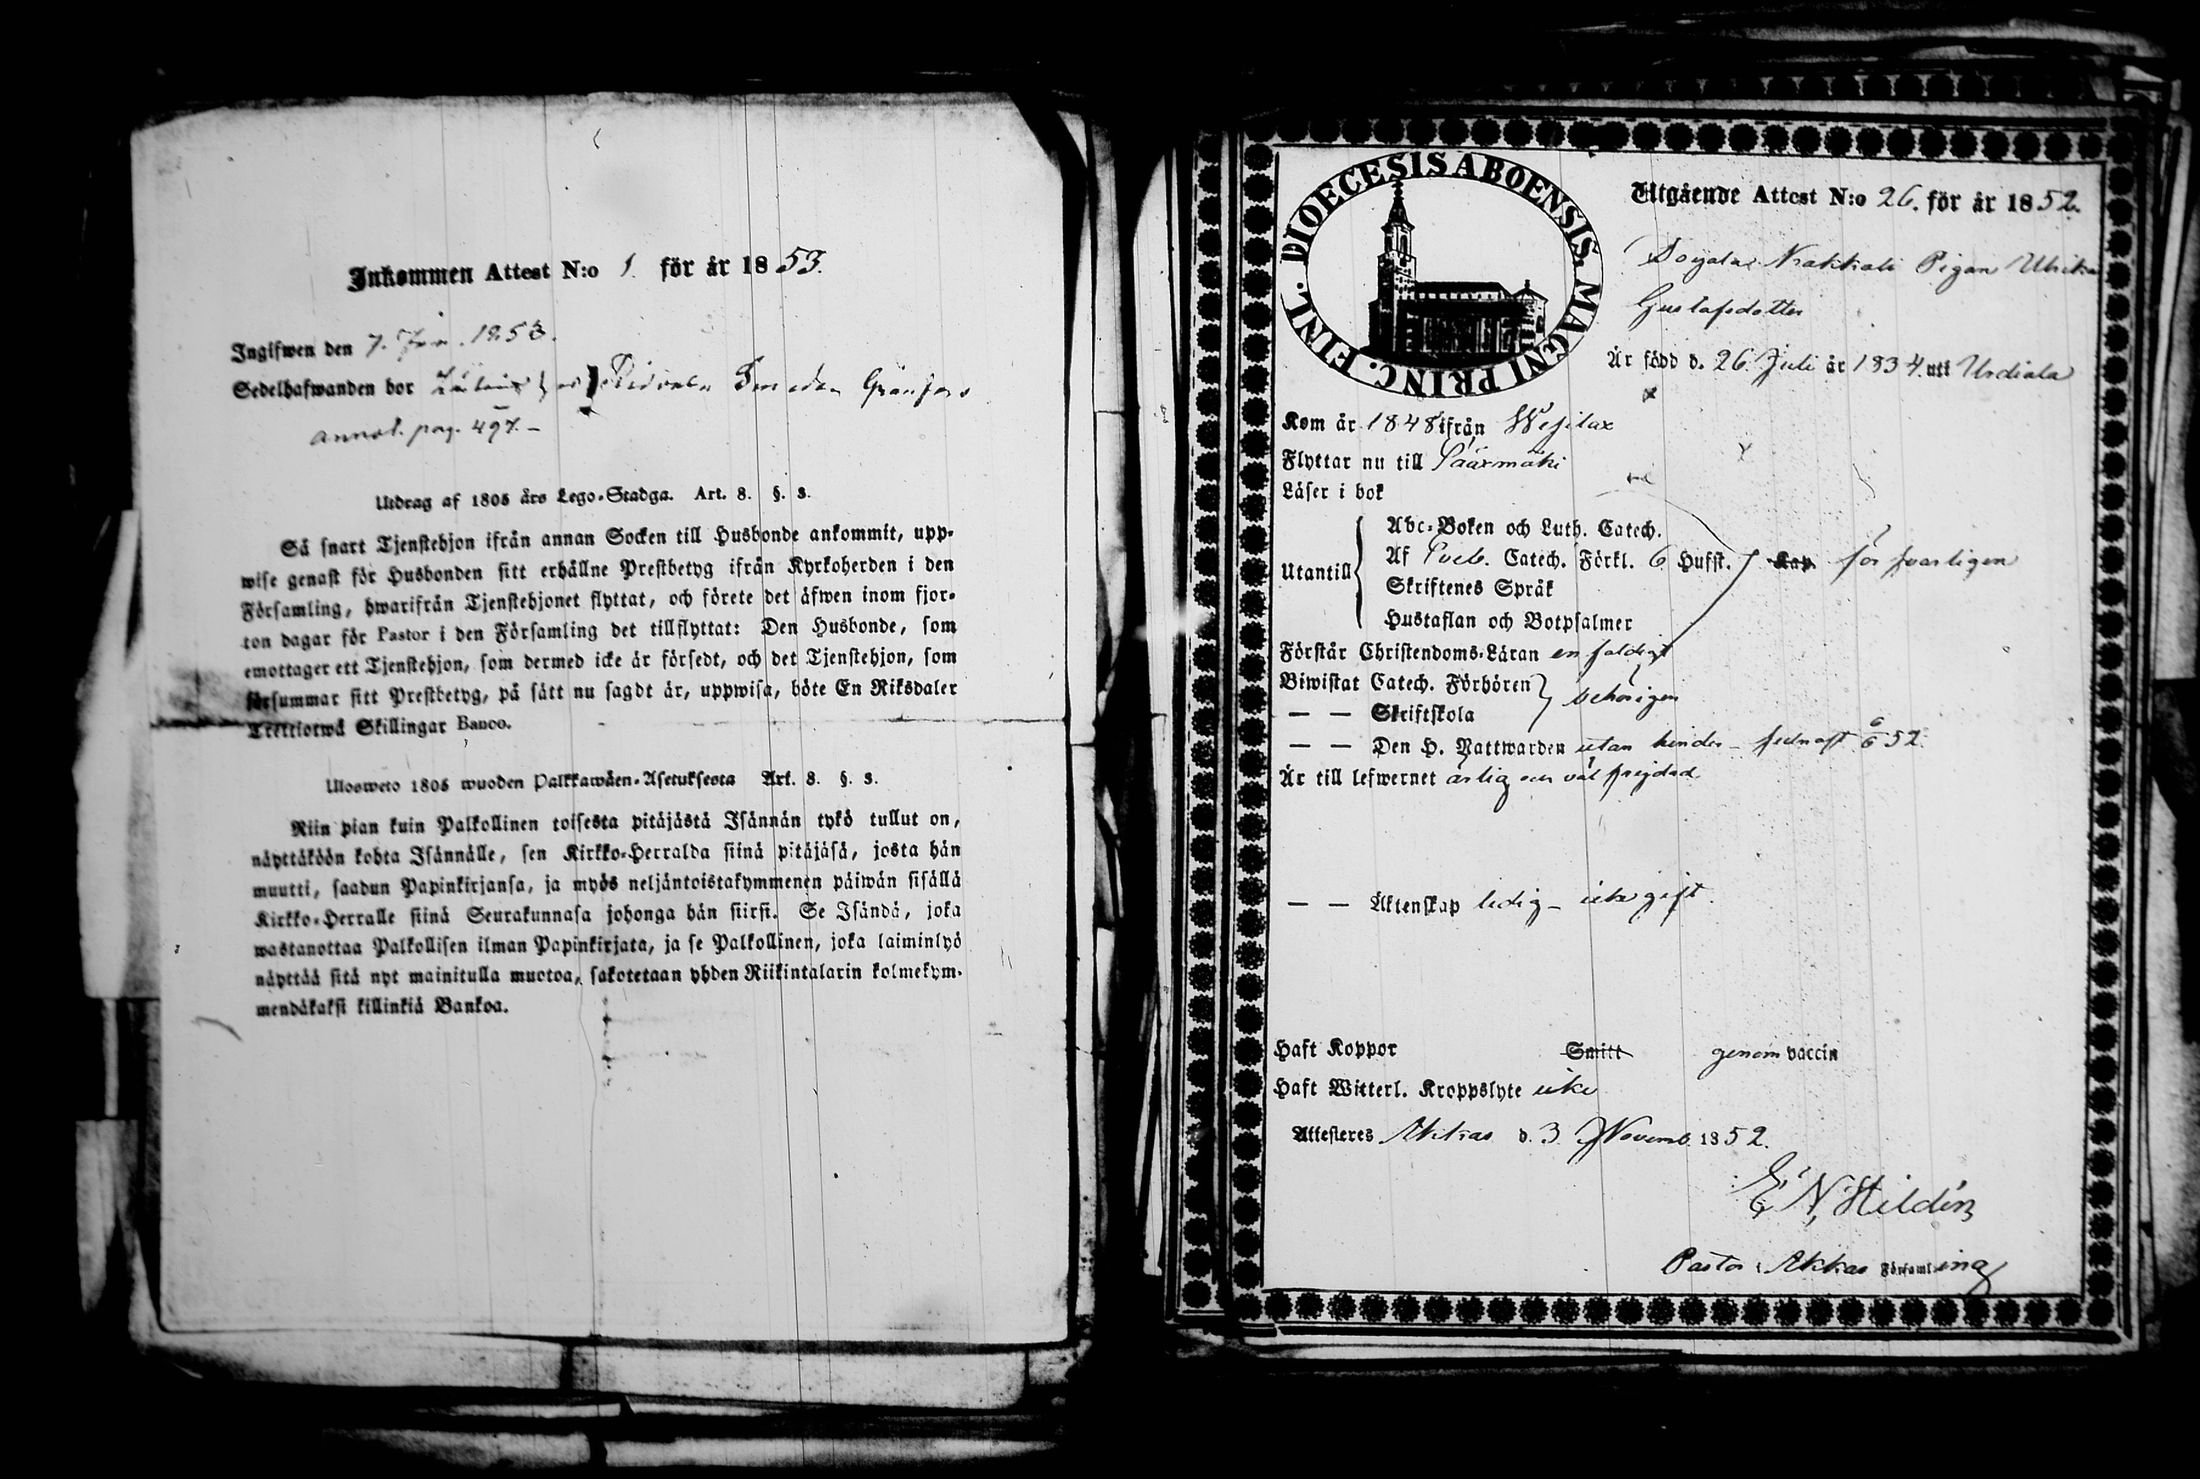 Inkommen Attest N:o 1. för år 1853.
Ingifwen den 7. Jan. 1853.
Sedelhafwanden bor Smeden Granfors
annot. pag. 497. –
Utdrag af 1805 års Lego-Stadga. Art. 8. §. 3.
Så snart Tjenstehjon ifrån annan Socken till Husbonde ankommit, upp-
wise genast för Husbonden sitt erhållne Prestbetyg ifrån Kyrkoherden i den
Församling, hwarifrån Tjenstehjonet flyttat, och förete det äfwen inom fjor-
ton dagar för Pastor i den Församling det tillflyttat: Den Husbonde, som
emottager ett Tjenstehjon, som dermed icke är försedt, och det Tjenstehjon, som
försummar sitt Prestbetyg, på sätt nu sagdt är, uppwisa, böte En Riksdaler
Trettiotwå Skillingar Banco.
Ulosweto 1805 wuoden Palkkawäen-Asetuksesta Art. 8. §. 3.
Niin pian kuin Palkollinen toisesta pitäjästä Isännän tykö tullut on,
näyttäköön kohta Isännälle, sen Kirkko-Herralda siinä pitäjäsä, josta hän
muutti, saadun Papinkirjansa, ja myös neljäntoistakymmenen päiwän sisällä
Kirkko-Herralle siinä Seurakunnasa johonga hän siirsi. Se Isändä, joka
wastanottaa Palkollisen ilman Papinkirjata, ja se Palkollinen, joka laiminlyö
näyttää sitä nyt mainitulla muotoa, sakotetaan yhden Riikintalarin kolmekym-
mendäkaksi killinkiä Bankoa.
DIOECESIS ABOENSIS. MAGNI PRINC. FINL.
Utgående Attest N:o 26. för år 1852.
Nakkali Pigan Ulrika
Gustafsdotter
Är född d. 26. Juli år 1834. uti Urdiala
Kom år 1848 ifrån Wesilax
Flyttar nu till Sääxmäki
Läser i bok
Utantill
Abc-Boken och Luth. Catech.
Af Sveb. Catech. Förkl. 6 Hufst. Kap. försvarligen
Skriftenes Språk
Hustaflan och Botpsalmer
Förstår Christendoms-Läran enfaldigt
Biwistat Catech. Förhören behörigen
— — Skriftskola
— — Den H. Nattwarden utan hinder – sednast 6/6 52.
Är till lefwernet ärlig och väl frejdad.
— — Äktenskap ledig – icke gift.
Haft Koppor Smitt genom vaccin
Haft Witterl. Kroppslyte icke
Attesteres Akkas d. 3. Novemb. 1852.
E. N. Hildén
Pastor i Akkas Församling